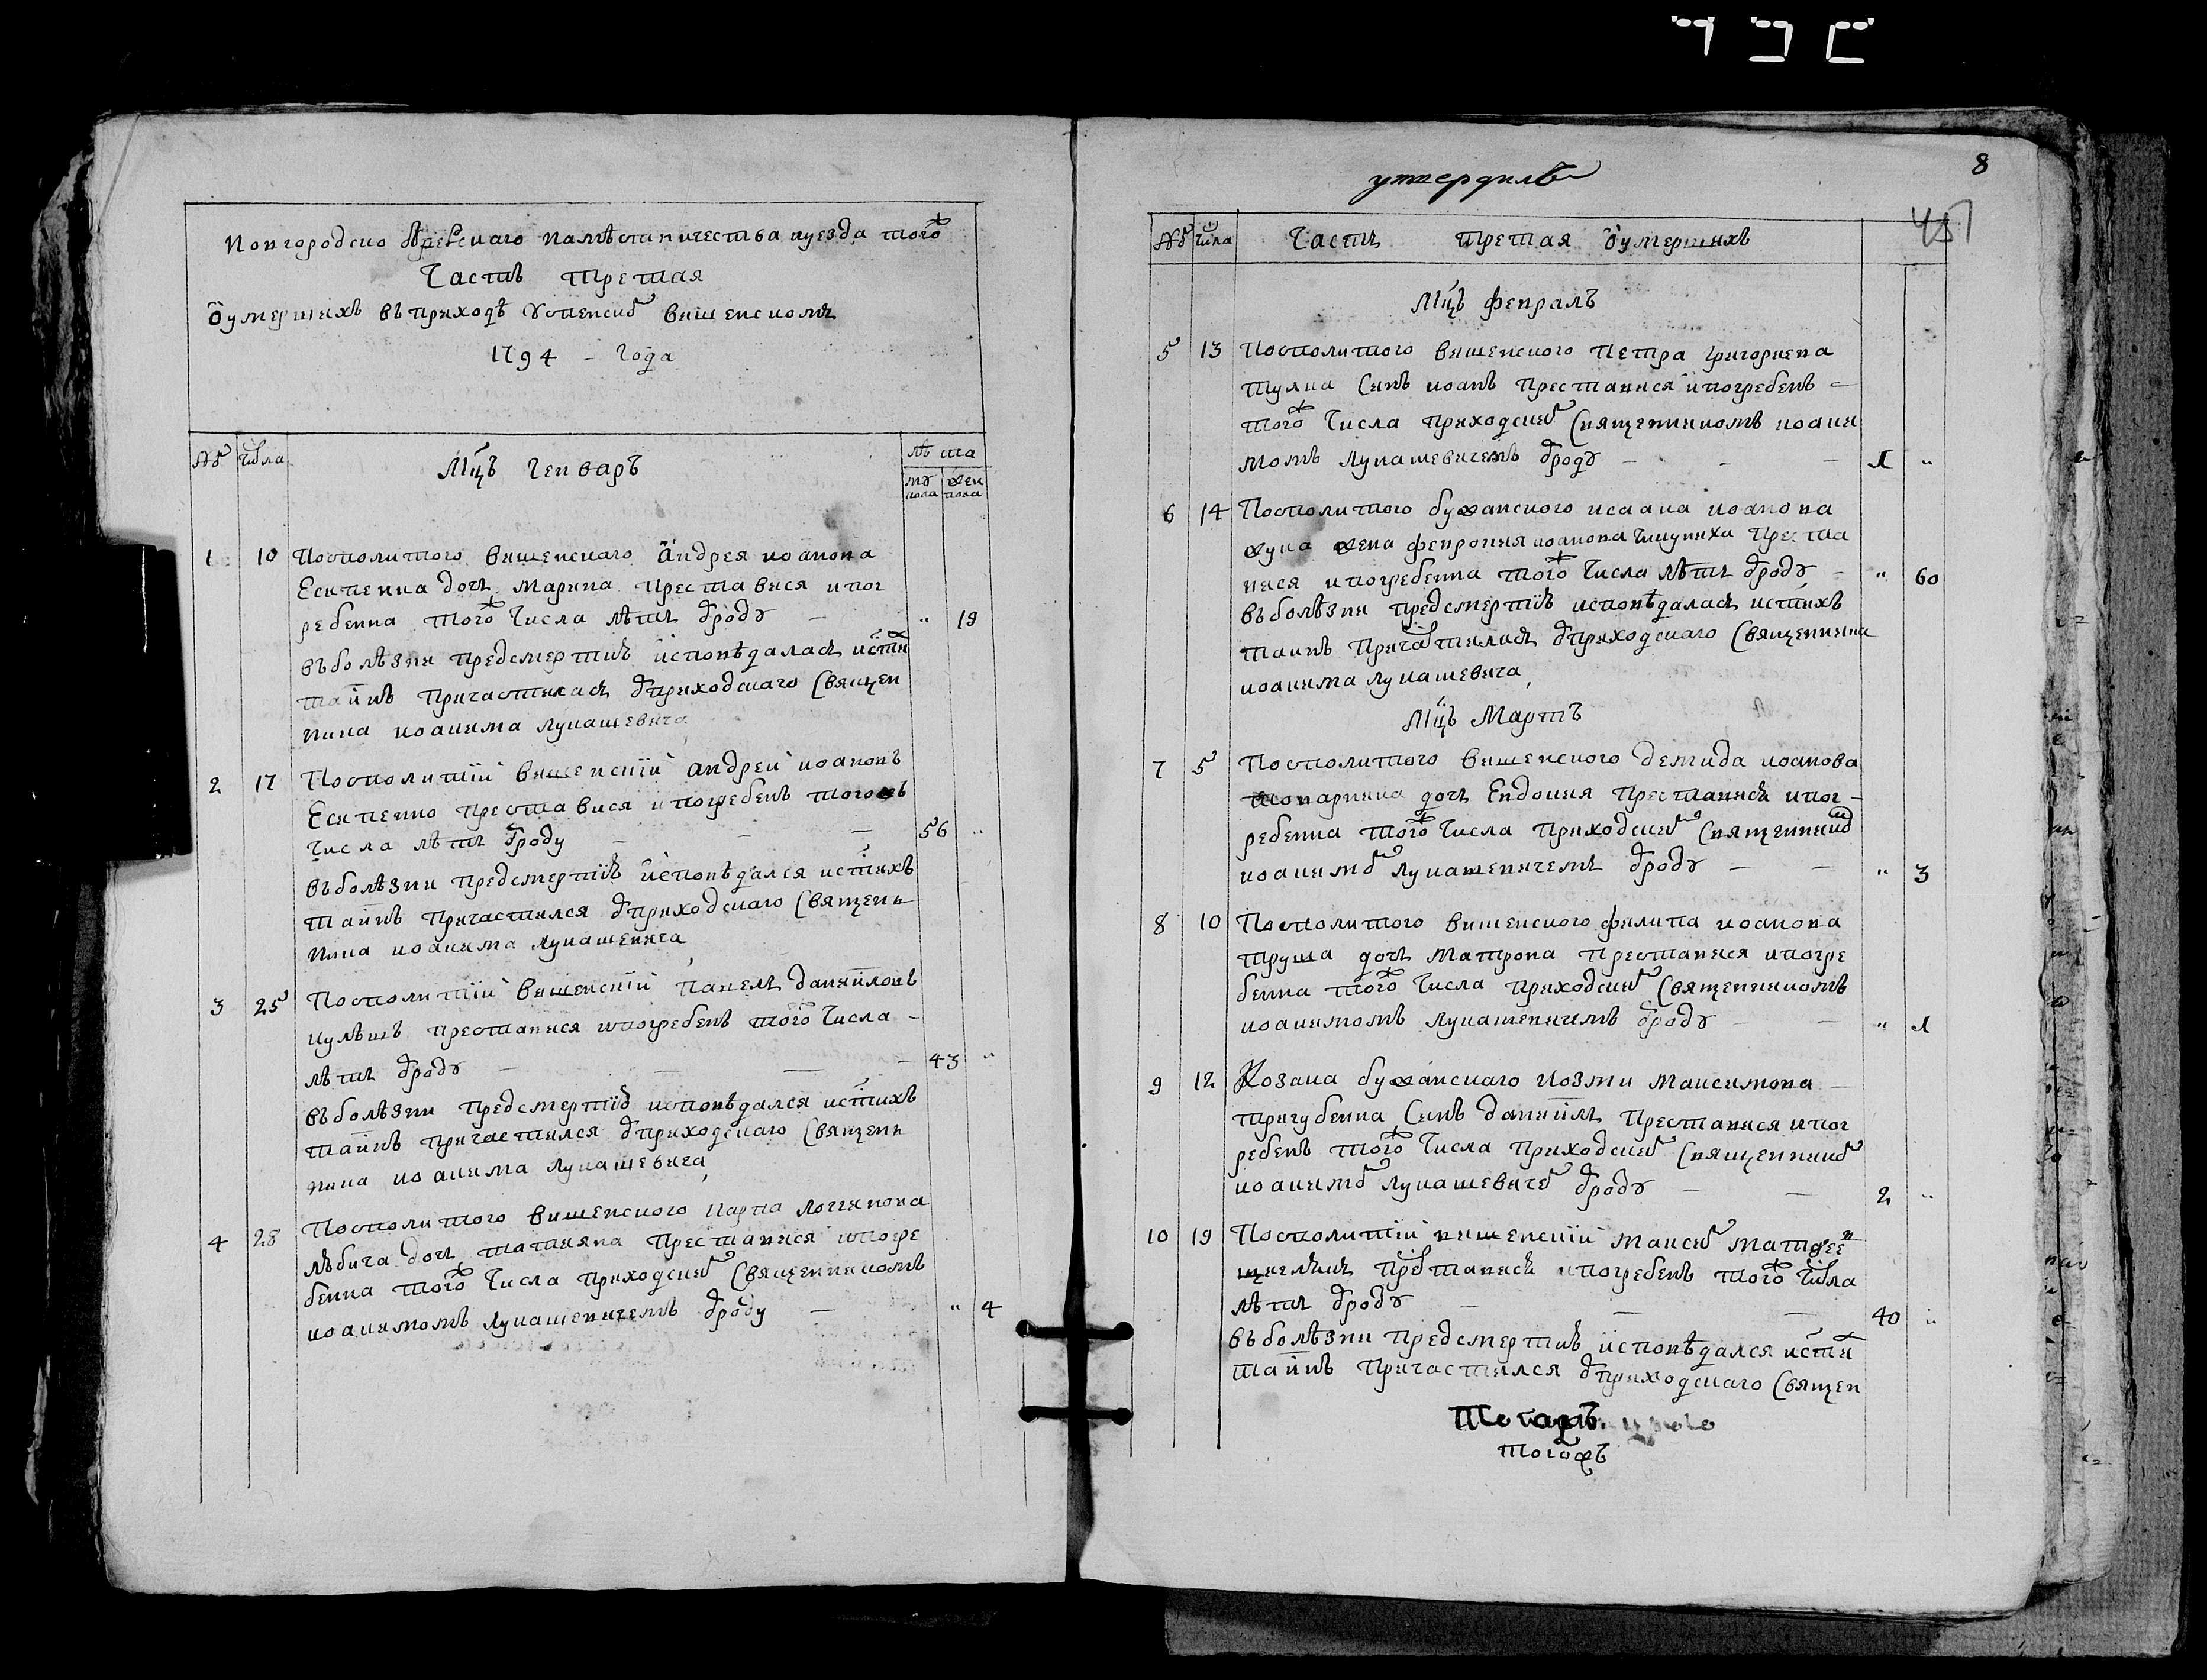 Новгородско Сѣверскаго намѣстничества и уезда того ж
Часть третая
ѿ умершихъ въ приходѣ Успенском Вишенскомъ
1794 – года
№ числа
Мц҃ъ Генваръ
лѣта
му пола
жен пола
1 10 Посполитого вишенскаго андрея иоанова
Есипенка дочь Марина преставися и пог
ребенна того ж числа лѣтъ ѿроду – " 19
въ болѣзни пред смертию исповѣдалась и с ти х
таинъ причастилась ѿ приходскаго свящеn
ника иоакима Лукашевича
2 17 Посполитій вишенскій андрей иоановъ
Есипенко преставися и погребенъ того жъ
числа лѣтъ ѿроду – – – 56 "
въ болѣзни пред смертию исповѣдался и с тихъ
таинъ причастился ѿ приходскаго свящеn
ника иоакима Лукашевича
3 25 Посполитій вишенскій Павелъ даниіловъ
кулѣшъ преставися и погребенъ того ж числа –
лѣтъ ѿроду – – – 43 "
въ болѣзни пред смертию исповѣдался и с тихъ
таинъ причастился ѿ приходскаго свящеn
ника иоакима Лукашевича
4 28 Посполитого вишенского карпа логгинова
лѣбича дочь татияна преставися и погре
бенна того ж числа приходским священникомъ
иоакимомъ Лукашевичемъ ѿроду – " 4
утвердилъ
8
№ числа Часть третая ѿ умершихъ
Мц҃ъ Февралъ
5 13 Посполитого вишенского Петра григориева
тулка синъ иоанъ преставися и погребенъ –
того ж числа приходским священникомъ иоаки
момъ Лукашевичемъ ѿроду – – – 1 "
6 14 Посполитого бужанского исаака иоанова
жука жена феврония иоанова преста
вися и погребенна того ж числа лѣтъ ѿроду – " 60
въ болѣзни пред смертию исповѣдалась и с тихъ
таинъ причастилась ѿ приходскаго священника
иоакима Лукашевича
Мц҃ъ Мартъ
7 5 Посполитого вишенского демида иоанова
дочь Евдокия преставись и пог –
ребенна того ж числа приходским священником
иоакимом Лукашевичемъ ѿроду – – " 3
8 10 Посполитого вишенского филипа иоанова
труша дочь Матрона преставися и погре
бенна того ж числа приходским священникомъ
иоакимомъ Лукашевичмъ ѿроду – – " 1
9 12 Козака бужанскаго козми максимова –
тригубенка синъ даниілъ преставися и пог
ребенъ того ж числа приходским священником
иоакимом Лукашевичем ѿроду – – 2 "
10 19 Посполитій вишенскій максим матфее в
преставись и погребенъ того ж числа
лѣтъ ѿроду – – – 40 "
въ болѣзни пред смертию исповѣдался и с ти х
таинъ причастился ѿ приходскаго священ
того жъ